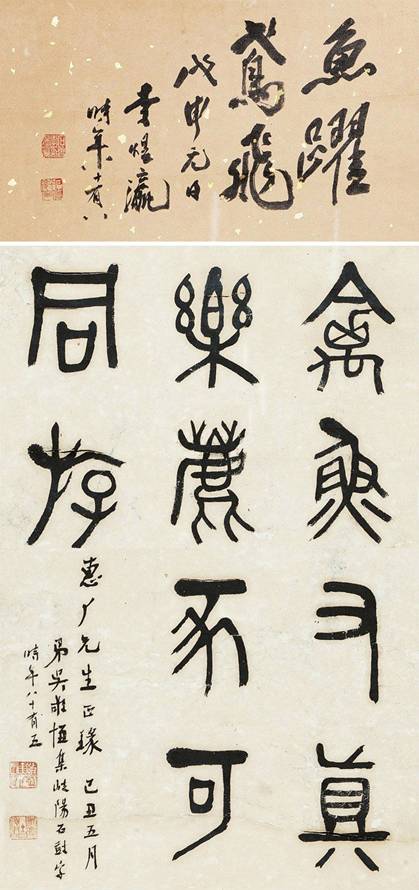 魚躍
鳶飛
戊申元日
李煜瀛
時年八十有八
禽魚又真
樂鹿豕可
同斿
惠厂先生正瑑 己丑五月
弟吳敬恆集岐陽石鼓字
時年八十有五